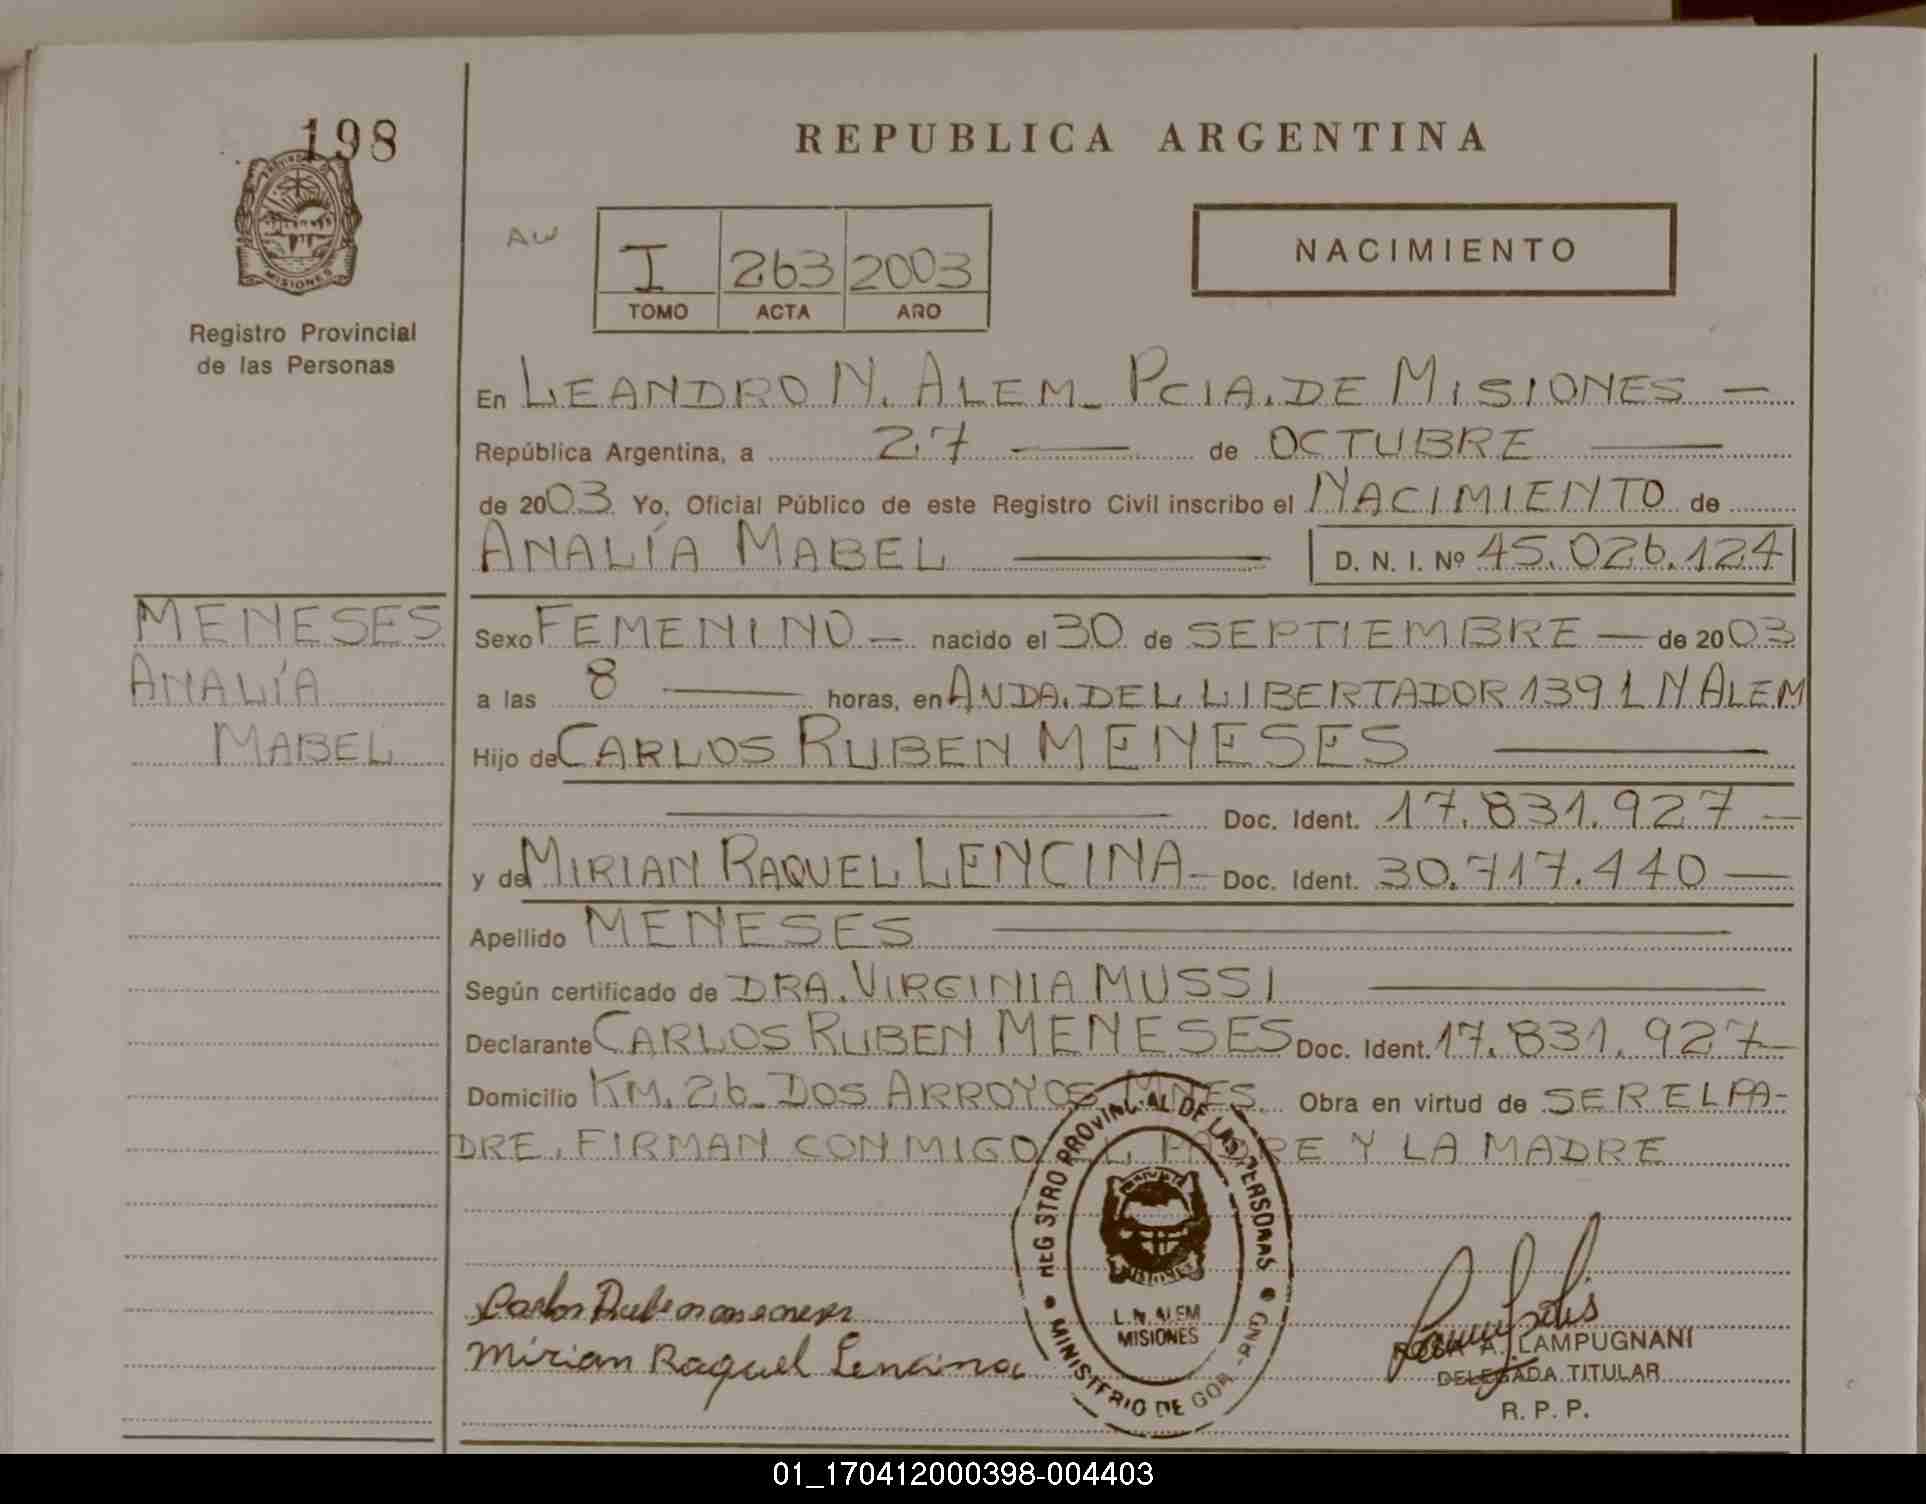 198
REPUBLICA ARGENTINA
PROVINCIA DE
MISIONES
Registro Provincial
de las Personas
AW
I 263 2003
TOMO ACTA AÑO
NACIMIENTO
En LEANDRO N. ALEM_ PCIA. DE MISIONES —
República Argentina, a 27 — de OCTUBRE —
de 2003 Yo, Oficial Público de este Registro Civil inscribo el NACIMIENTO de
ANALÍA MABEL — D. N. I. Nº 45.026.124
MENESES
ANALÍA
MABEL
Sexo FEMENINO — nacido el 30 de SEPTIEMBRE — de 2003
a las 8 — horas, en AVDA. DEL LIBERTADOR 139 L N ALEM
Hijo de CARLOS RUBEN MENESES —
— Doc. Ident. 17.831.927 —
y de MIRIAN RAQUEL LENCINA — Doc. Ident. 30.717.440 —
Apellido MENESES —
Según certificado de DRA. VIRGINIA MUSSI —
Declarante CARLOS RUBEN MENESES Doc. Ident. 17.831.927 —
Domicilio KM. 26_ DOS ARROYOS MNES. Obra en virtud de SER EL PA-
DRE. FIRMAN CONMIGO EL PADRE Y LA MADRE
REGISTRO PROVINCIAL DE LAS PERSONAS
MISIONES
L. N. ALEM
MISIONES
MINISTERIO DE GOB.
Carlos Ruben meneses
Mirian Raquel Lencina
ROSA A. LAMPUGNANI
DELEGADA TITULAR
R. P. P.
01_170412000398-004403